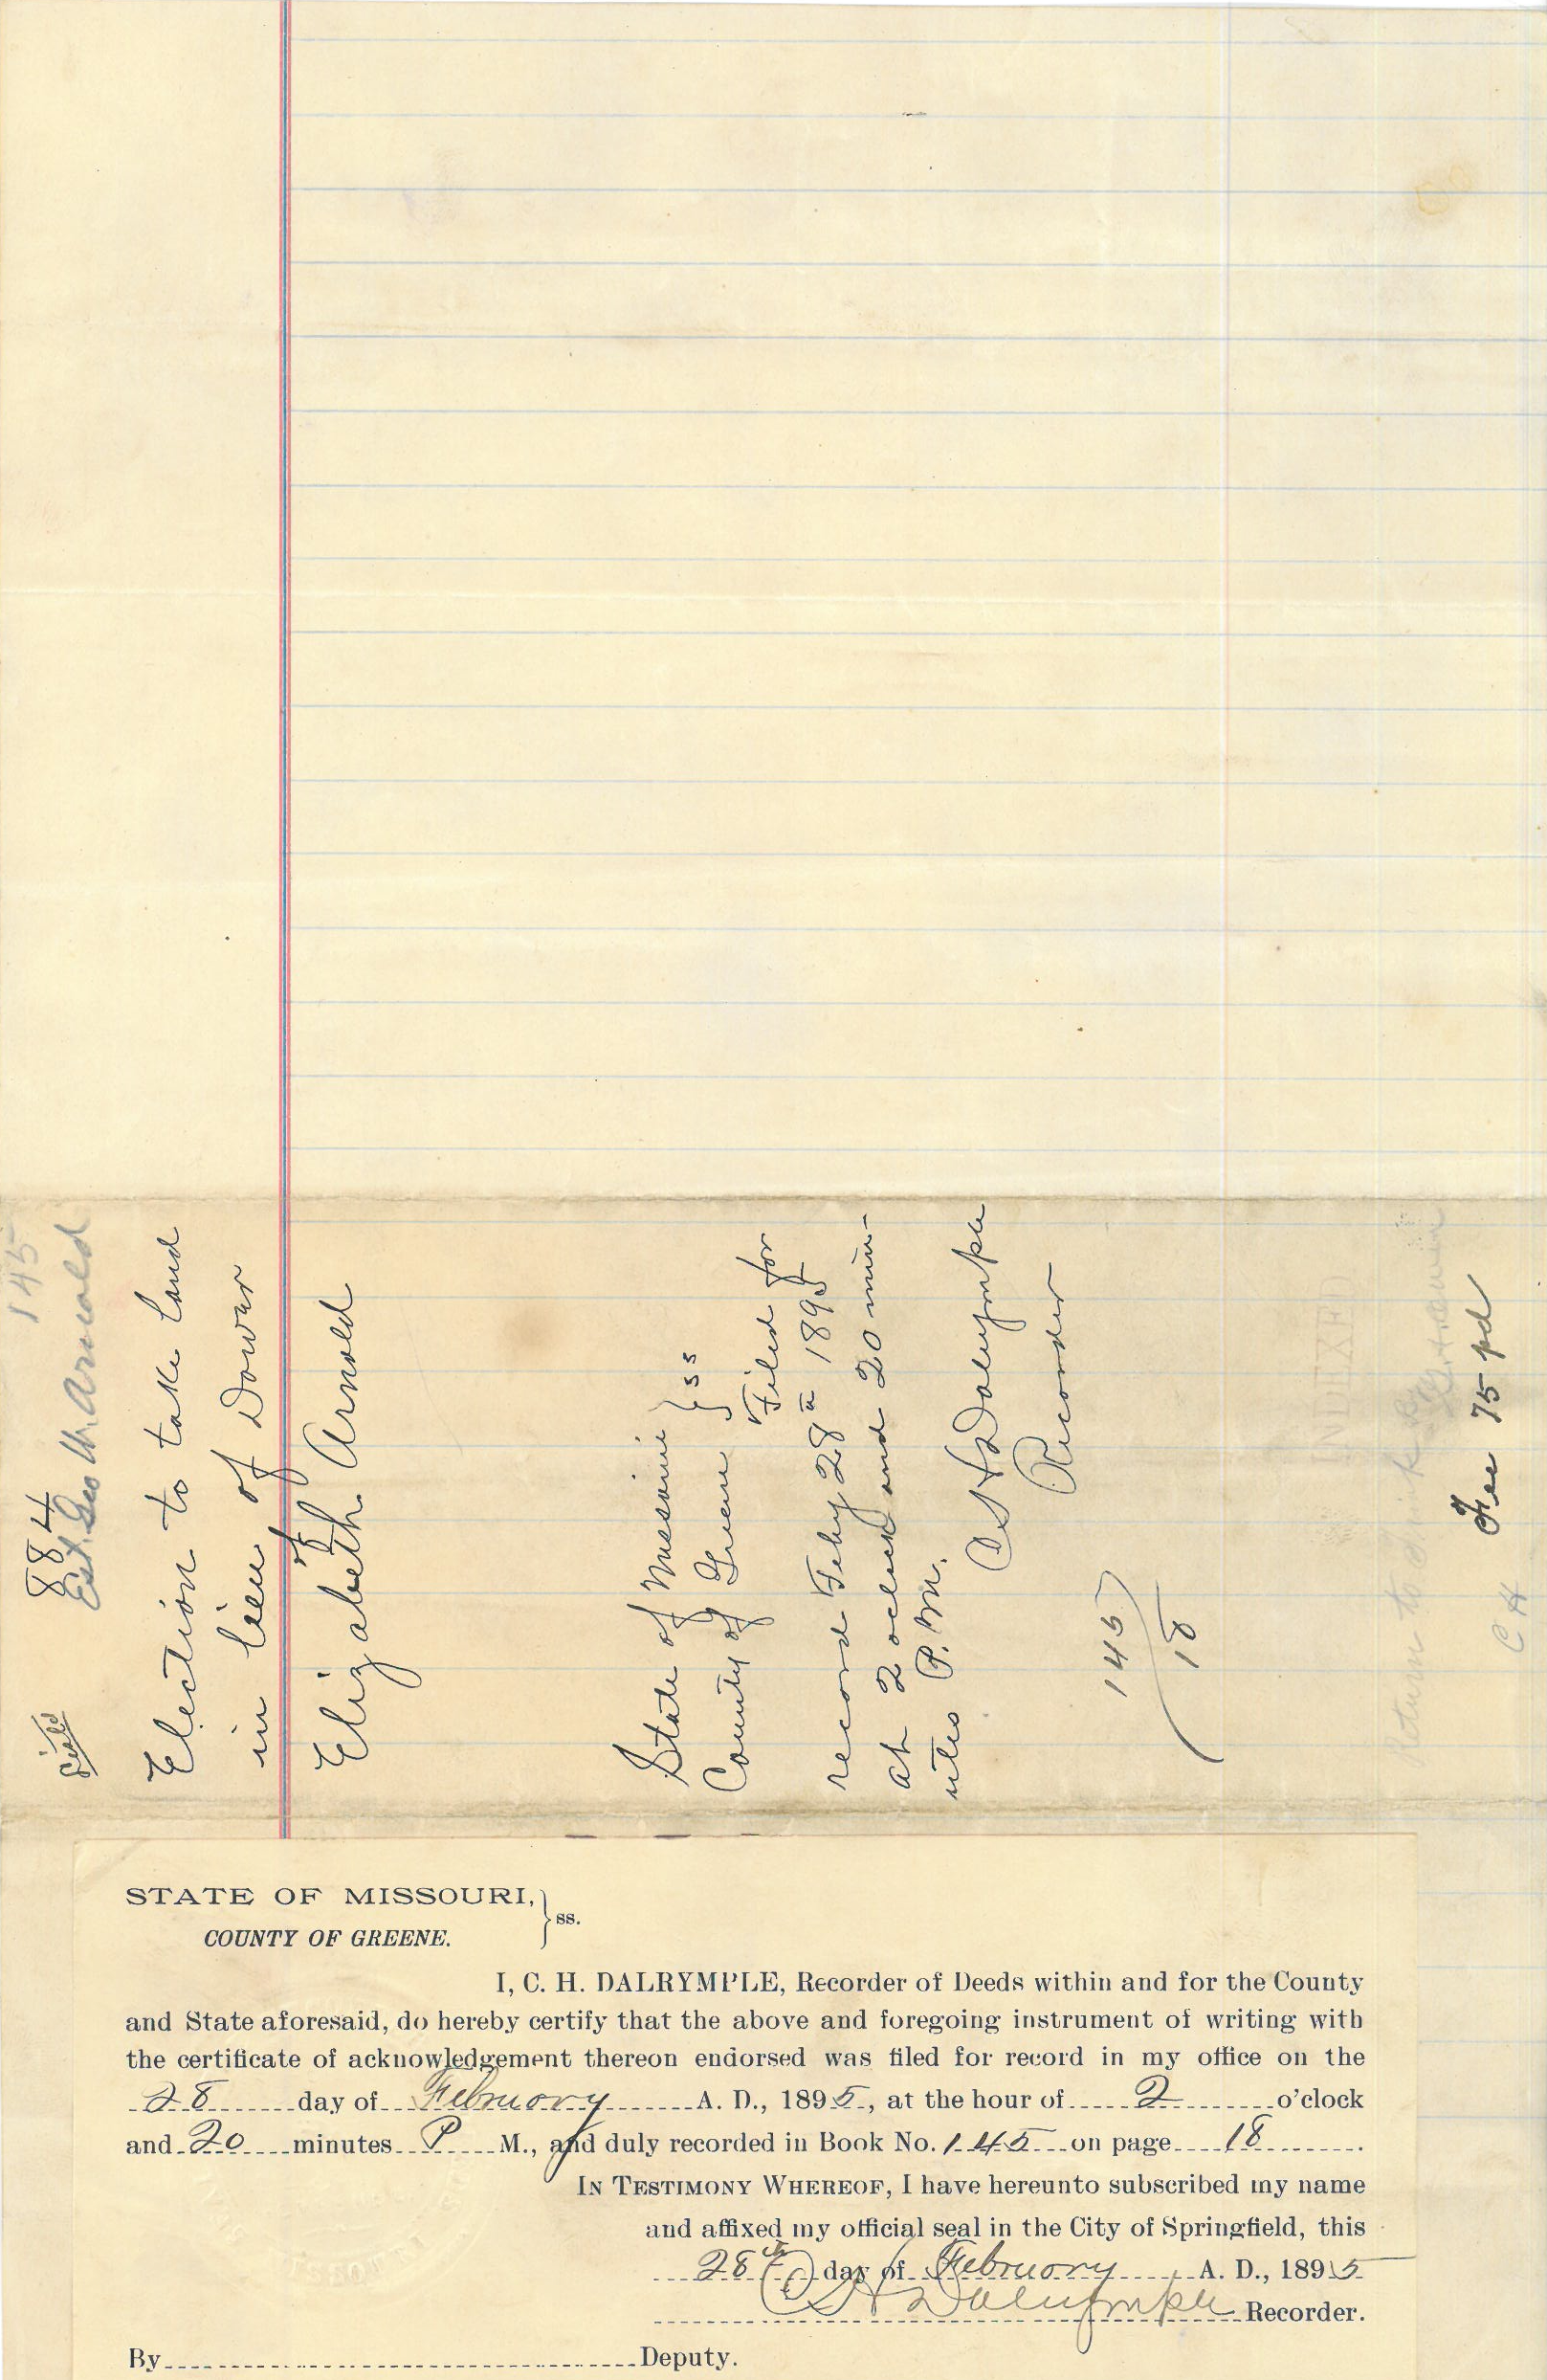 145
884
Est. Geo W. Arnold
File
Election to take land
in lieu of Dower
of
Elizabeth Arnold
State of Missouri } ss
County of Greene
Filed for
record Feby 28th 1895
at 2 oclock and 20 min-
utes P.M.
C H Dalrymple
Recorder
145
18
INDEXED
Return to
Fee 75 pd
C H
STATE OF MISSOURI, } ss.
COUNTY OF GREENE.
I, C. H. DALRYMPLE, Recorder of Deeds within and for the County
and State aforesaid, do hereby certify that the above and foregoing instrument of writing with
the certificate of acknowledgement thereon endorsed was filed for record in my office on the
28 day of February A. D., 1895, at the hour of 2 o'clock
and 20 minutes P M., and duly recorded in Book No. 145 on page 18.
IN TESTIMONY WHEREOF, I have hereunto subscribed my name
and affixed my official seal in the City of Springfield, this
28th day of February A. D., 1895
C H Dalrymple Recorder.
By Deputy.